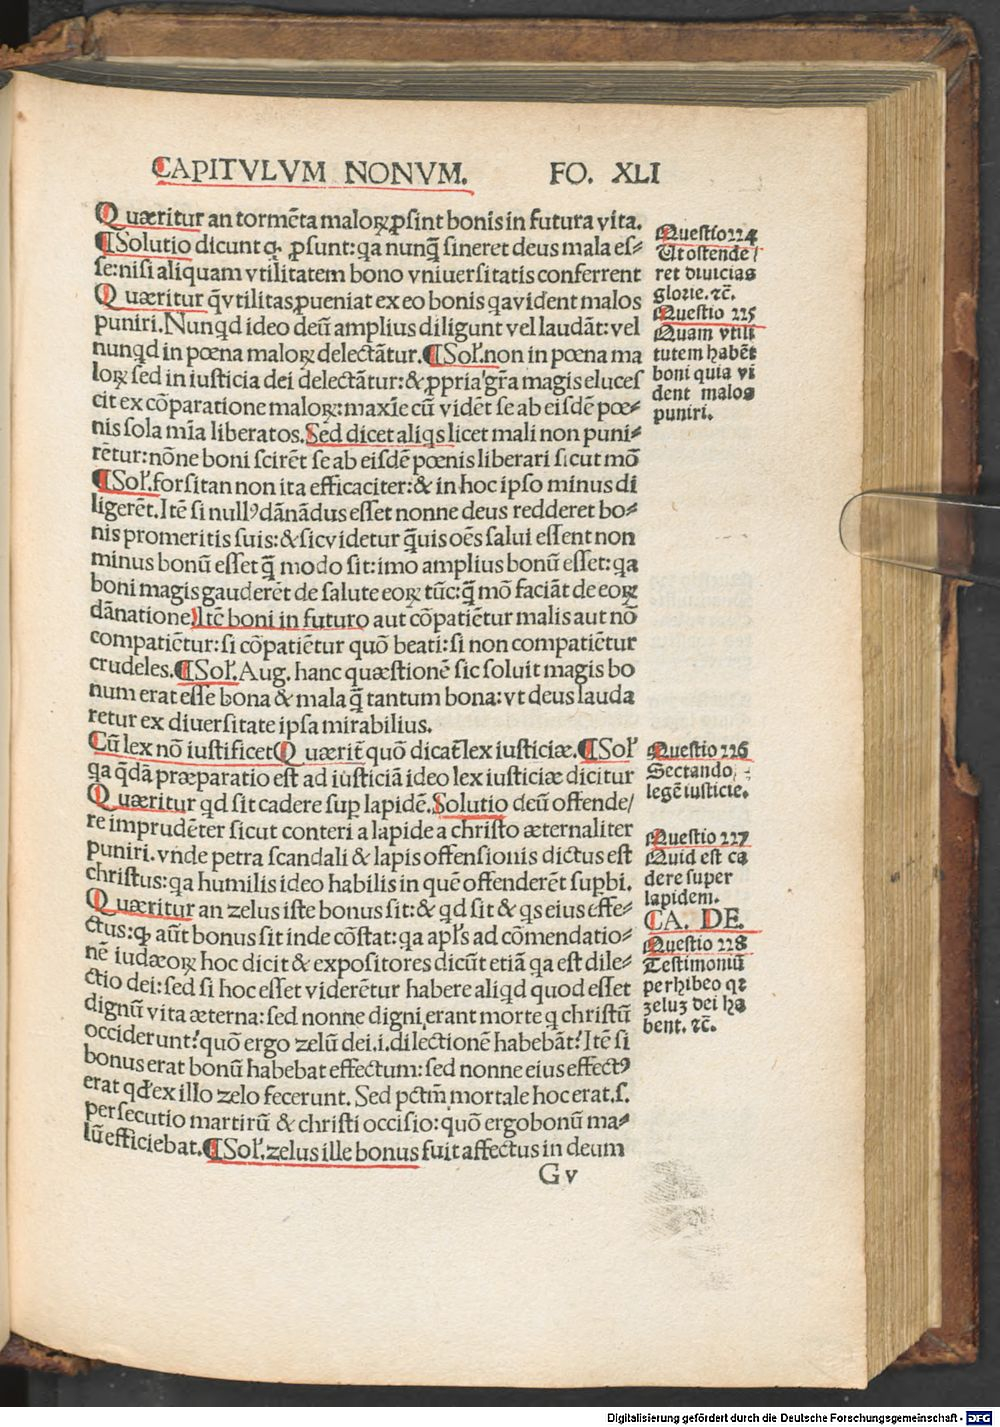 CAPITVLVM NONVM. FO. XLI
Quæritur an tormẽta maloꝝ ꝓsint bonis in futura vita.
¶Solutio dicunt ꝙ ꝓsunt: qa nunq̃ sineret deus mala es⸗
se: nisi aliquam vtilitatem bono vniuersitatis conferrent
Quæritur q̃ vtilitas ꝓueniat ex eo bonis qa vident malos
puniri. Nunqd ideo deũ amplius diligunt vel laudãt: vel
nunqd in pœna maloꝝ delectãtur. ¶Sol’. non in pœna ma
loꝝ sed in iusticia dei delectãtur: & ꝓpria gr̃a magis eluces
cit ex cõparatione maloꝝ: maxĩe cũ vidẽt se ab eisdẽ pœ⸗
nis sola mĩa liberatos. Sed dicet aliqs licet mali non puni⸗
rẽtur: nõne boni scirẽt se ab eisdẽ pœnis liberari sicut mõ
¶Sol’. forsitan non ita efficaciter: & in hoc ipso minus di
ligerẽt. Itẽ si nullꝰ dãnãdus esset nonne deus redderet bo⸗
nis pro meritis suis: & sic videtur q̃uis oẽs salui essent non
minus bonũ esset q̃ modo sit: imo amplius bonũ esset: qa
boni magis gauderẽt de salute eoꝝ tũc: q̃ mõ faciãt de eoꝝ
dãnatione. Itẽ boni in futuro aut cõpatiẽtur malis aut nõ
compatiẽtur: si cõpatiẽtur quõ beati: si non compatiẽtur
crudeles. ¶Sol’. Aug. hanc quæstionẽ sic soluit magis bo
num erat esse bona & mala q̃ tantum bona: vt deus lauda
retur ex diuersitate ipsa mirabilius.
Cũ lex nõ iustificet Quærit̃ quõ dicat̃ lex iusticiæ. ¶Sol’
qa q̃dã præparatio est ad iusticiã ideo lex iusticiæ dicitur
Quæritur qd sit cadere suꝑ lapidẽ. Solutio deũ offende/
re imprudẽter sicut conteri a lapide a christo æternaliter
puniri. vnde petra scandali & lapis offensionis dictus est
christus: qa humilis ideo habilis in quẽ offenderẽt suꝑbi.
Quæritur an zelus iste bonus sit: & qd sit & qs eius effe⸗
ctus: ꝙ aũt bonus sit inde cõstat: qa apl’s ad cõmendatio⸗
nẽ iudæoꝝ hoc dicit & expositores dicũt etiã qa est dile⸗
ctio dei: sed si hoc esset viderẽtur habere aliqd quod esset
dignũ vita æterna: sed nonne digni erant morte q christũ
occiderunt? quõ ergo zelũ dei .i. dilectionẽ habebãt? Itẽ si
bonus erat bonũ habebat effectum: sed nonne eius effectꝰ
erat qd’ ex illo zelo fecerunt. Sed pctm̃ mortale hoc erat .s.
persecutio martirũ & christi occisio: quõ ergo bonũ ma⸗
lũ efficiebat. ¶Sol’. zelus ille bonus fuit affectus in deum
G v
Questio 224
Ut ostende/
ret diuicias
glorie. ⁊c̃.
Questio 225
Quam vtili
tutem habẽt
boni quia vĩ
dent malos
puniri.
Questio 226
Sectando
legẽ iusticie.
Questio 227
Quid est ca
dere super
lapidem.
CA. DE.
Questio 228
Testimoniũ
perhibeo qꝛ
zeluz dei ha
bent. ⁊c̃.
Digitalisierung gefördert durch die Deutsche Forschungsgemeinschaft - DFG